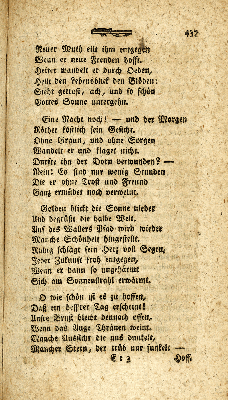 437
Neuer Muth eile ihm entgegen
Wenn er neue Freuden hofft.
Heiter wandelt er durch Oeden,
Hellt den Lebensblick den Blöden:
Sieht getrost, ach, und so schön
Gottes Sonne untergehn.
Eine Nacht noch! — und der Morgen
Röthet köstlich sein Gesicht.
Ohne Graun, und ohne Sorgen
Wandelt er und klaget nicht.
Durfte ihn der Dorn verwunden? —
Nein! Es sind nur wenig Stunden
Die er ohne Trost und Freund
Ganz ermüdet noch verweint.
Golden blickt die Sonne nieder
Und begrüßt die halbe Welt.
Auf des Wallers Pfad wird wieder
Manche Schönheit hingestellt.
Ruhig schlägt sein Herz voll Segen,
Jeder Zukunft froh entgegen,
Wenn er dann so ungehärmt
Sich am Sonnenstrahl erwärmt.
O wie schön ist es zu hoffen,
Daß ein beßrer Tag erscheint!
Unsre Brust bleibt dennoch offen,
Wenn das Auge Thränen weint.
Manche Aussicht die uns dunkelt,
Mancher Stern, der trüb nur funkelt —
E e 3
Hoff-